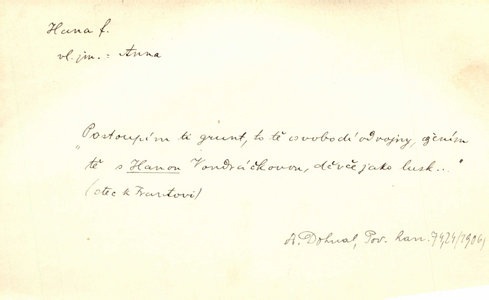 Hana f.
vl. jm.: Anna
"Postoupím ti grunt, to tě osvobodí od vojny, ožením
tě s Hanou Vondráčkovou, děvče jako lusk..."
(otec k Frantovi)
A. Dohnal, Pov. han. 79,24/1906,